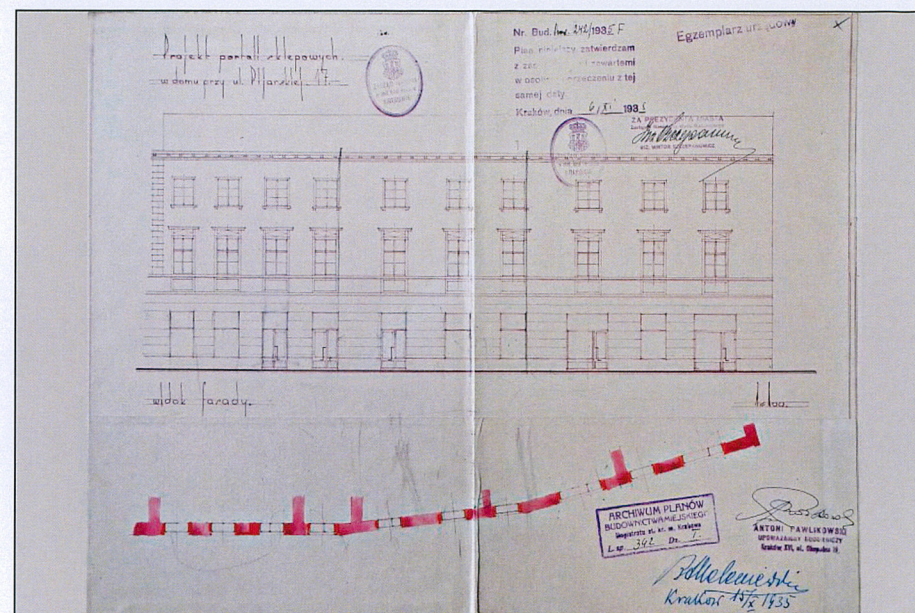 Projekt portali sklepowych.
w domu przy ul. Pijarskiej 17.
Nr. Bud. 242/1935 F
Plan niniejszy zatwierdzam
z zawartemi
w orzeczeniu z tej
samej daty.
Kraków, dnia 6/XI 1935
Egzemplarz urzędowy
ZA PREZYDENTA MIASTA
widok fasady.
1:100.
ARCHIWUM PLANÓW
BUDOWNICTWA MIEJSKIEGO
Magistratu st. kr. m. Krakowa
L. sp. 342 Dz. 1.
ANTONI PAWLIKOWSKI
UPOWAŻNIONY BUDOWNICZY
Kraków XVI, ul.
Kraków 15/X 1935